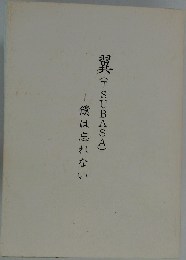 翼(TSUBASA)
―僕は忘れない